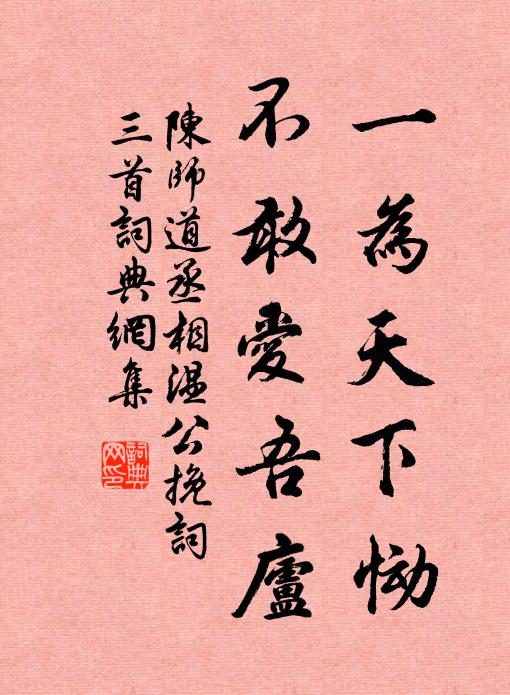 一為天下慟
不敢愛吾廬
陳師道丞相温公挽詞
三首詞典網集
詞典
网印